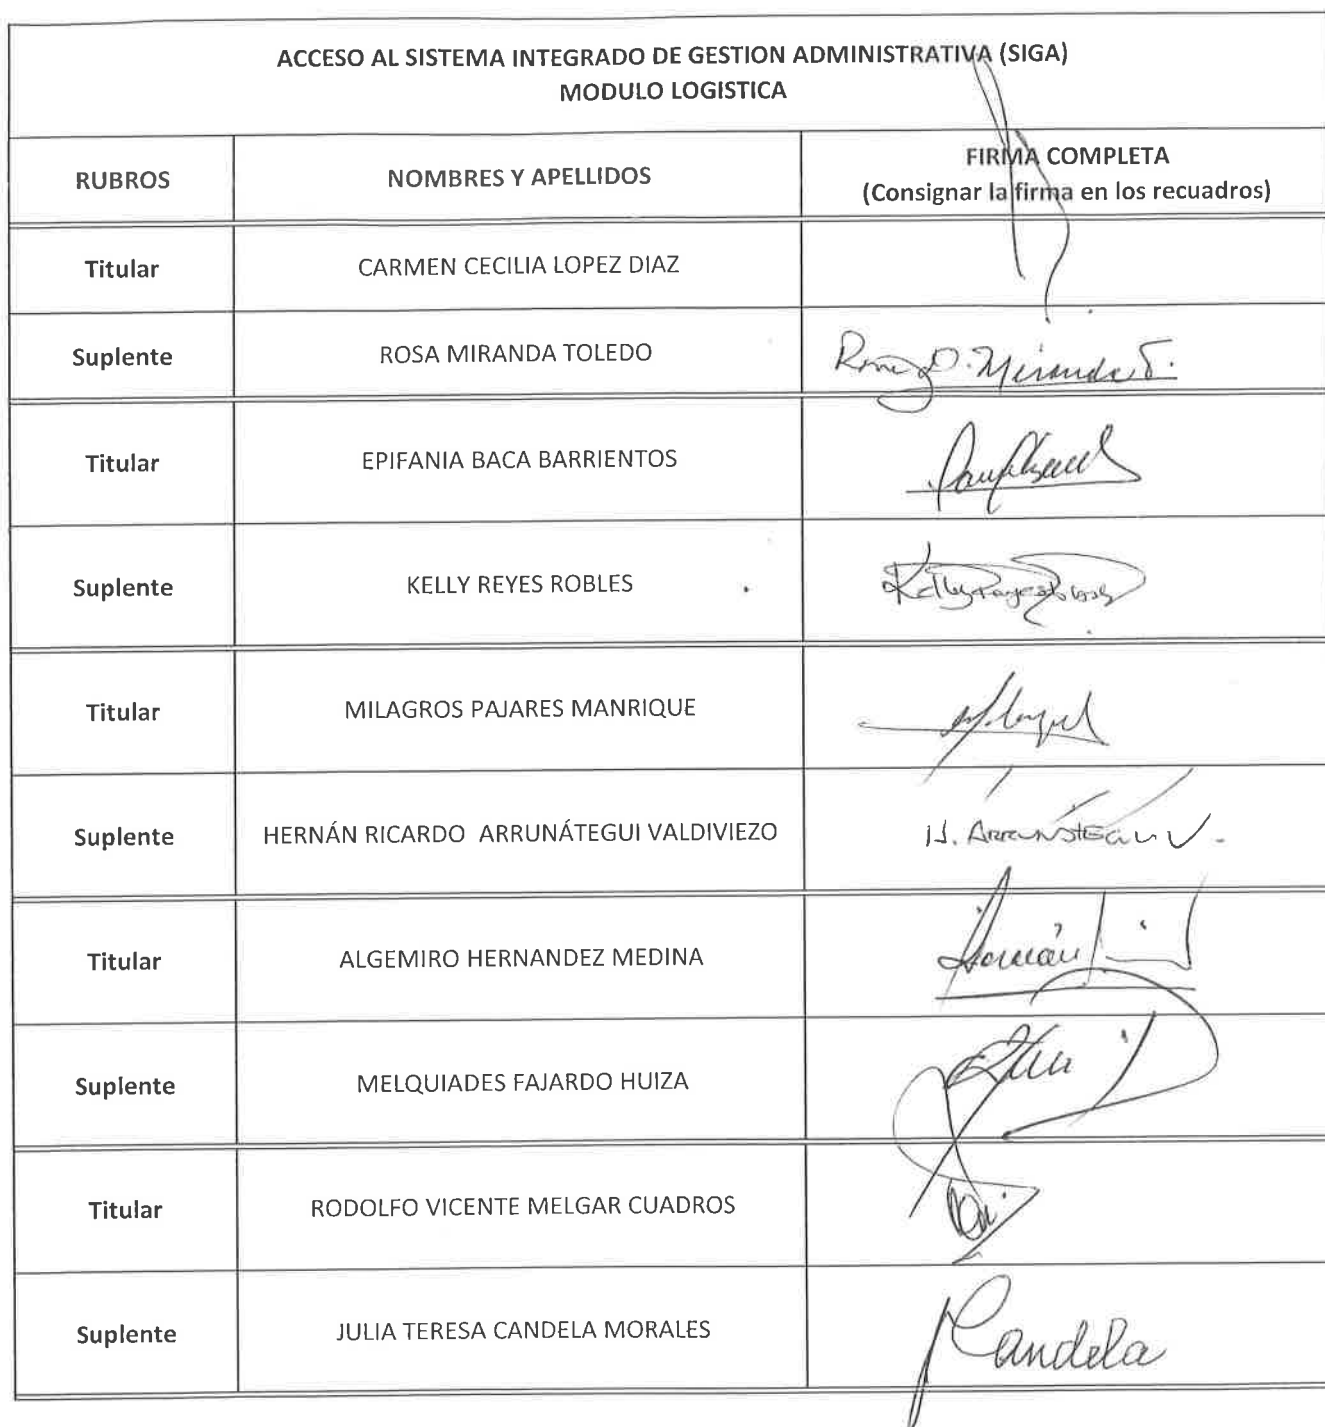 ACCESO AL SISTEMA INTEGRADO DE GESTION ADMINISTRATIVA (SIGA)
MODULO LOGISTICA
RUBROS
NOMBRES Y APELLIDOS
FIRMA COMPLETA
(Consignar la firma en los recuadros)
Titular
CARMEN CECILIA LOPEZ DIAZ
Suplente
ROSA MIRANDA TOLEDO
Rosa D. Miranda T.
Titular
EPIFANIA BACA BARRIENTOS
Suplente
KELLY REYES ROBLES
Kelly Reyes Robles
Titular
MILAGROS PAJARES MANRIQUE
Suplente
HERNÁN RICARDO ARRUNÁTEGUI VALDIVIEZO
H. ARRUNÁTEGUI V.
Titular
ALGEMIRO HERNANDEZ MEDINA
Suplente
MELQUIADES FAJARDO HUIZA
Titular
RODOLFO VICENTE MELGAR CUADROS
Suplente
JULIA TERESA CANDELA MORALES
Candela